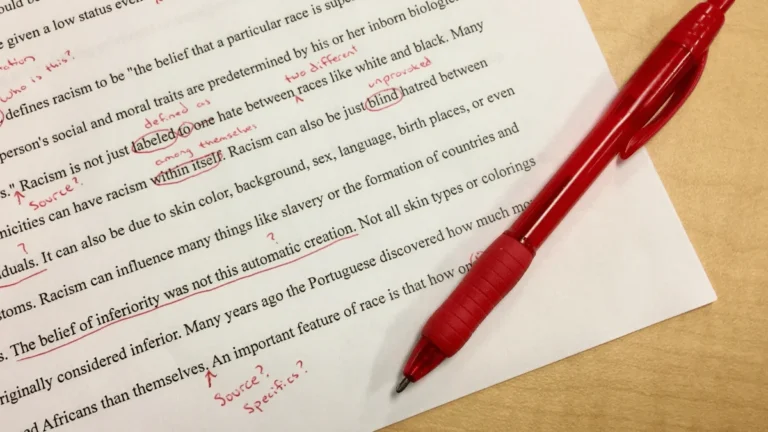 ould be
e given a low status even
ation
who is this?
defines racism to be "the belief that a particular race is supe
two different
person's social and moral traits are predetermined by his or her inborn biologic
defined as
unprovoked
s." Racism is not just labeled to one hate between races like white and black. Many
Source?
among themselves
nicities can have racism within itself. Racism can also be just blind hatred between
?
duals. It can also be due to skin color, background, sex, language, birth places, or even
?
stoms. Racism can influence many things like slavery or the formation of countries and
s. The belief of inferiority was not this automatic creation. Not all skin types or colorings
originally considered inferior. Many years ago the Portuguese discovered how much mo
d Africans than themselves. An important feature of race is that how op
Source?
Specifics?